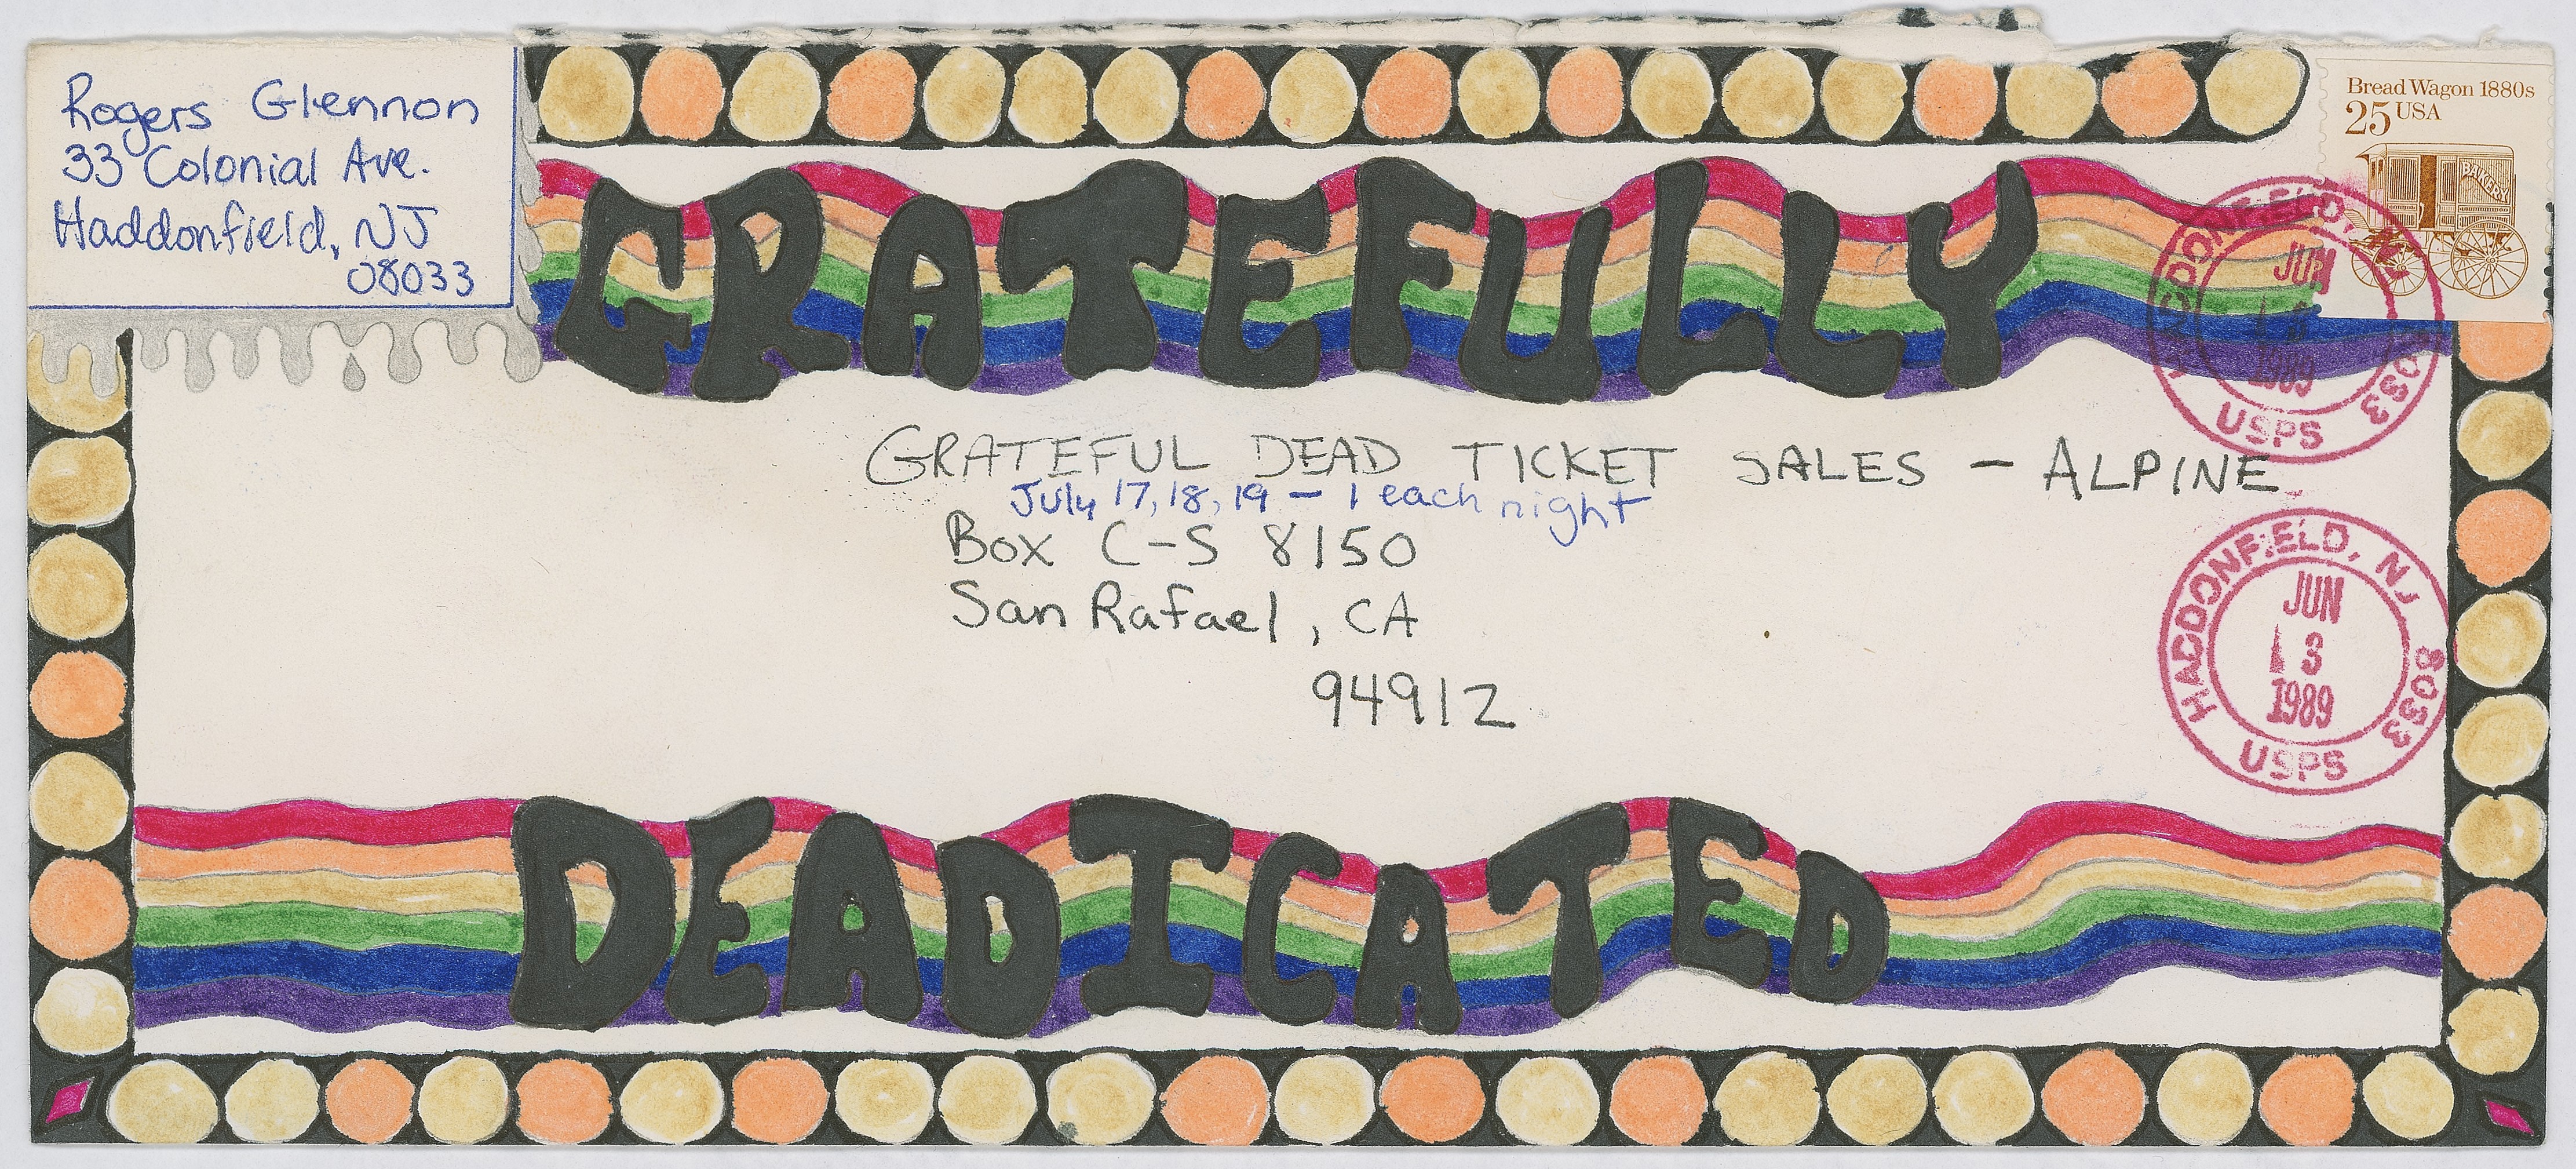 Rogers Glennon
33 Colonial Ave.
Haddonfield, NJ
08033
Bread Wagon 1880s
25 USA
BAKERY
GRATEFULLY
HADDONFIELD, NJ
JUN
1989
USPS
8033
GRATEFUL DEAD TICKET SALES – ALPINE
July 17, 18, 19 – 1 each night
Box C-S 8150
San Rafael, CA
94912
HADDONFIELD, NJ 8033
JUN
3
1989
USPS
DEADICATED